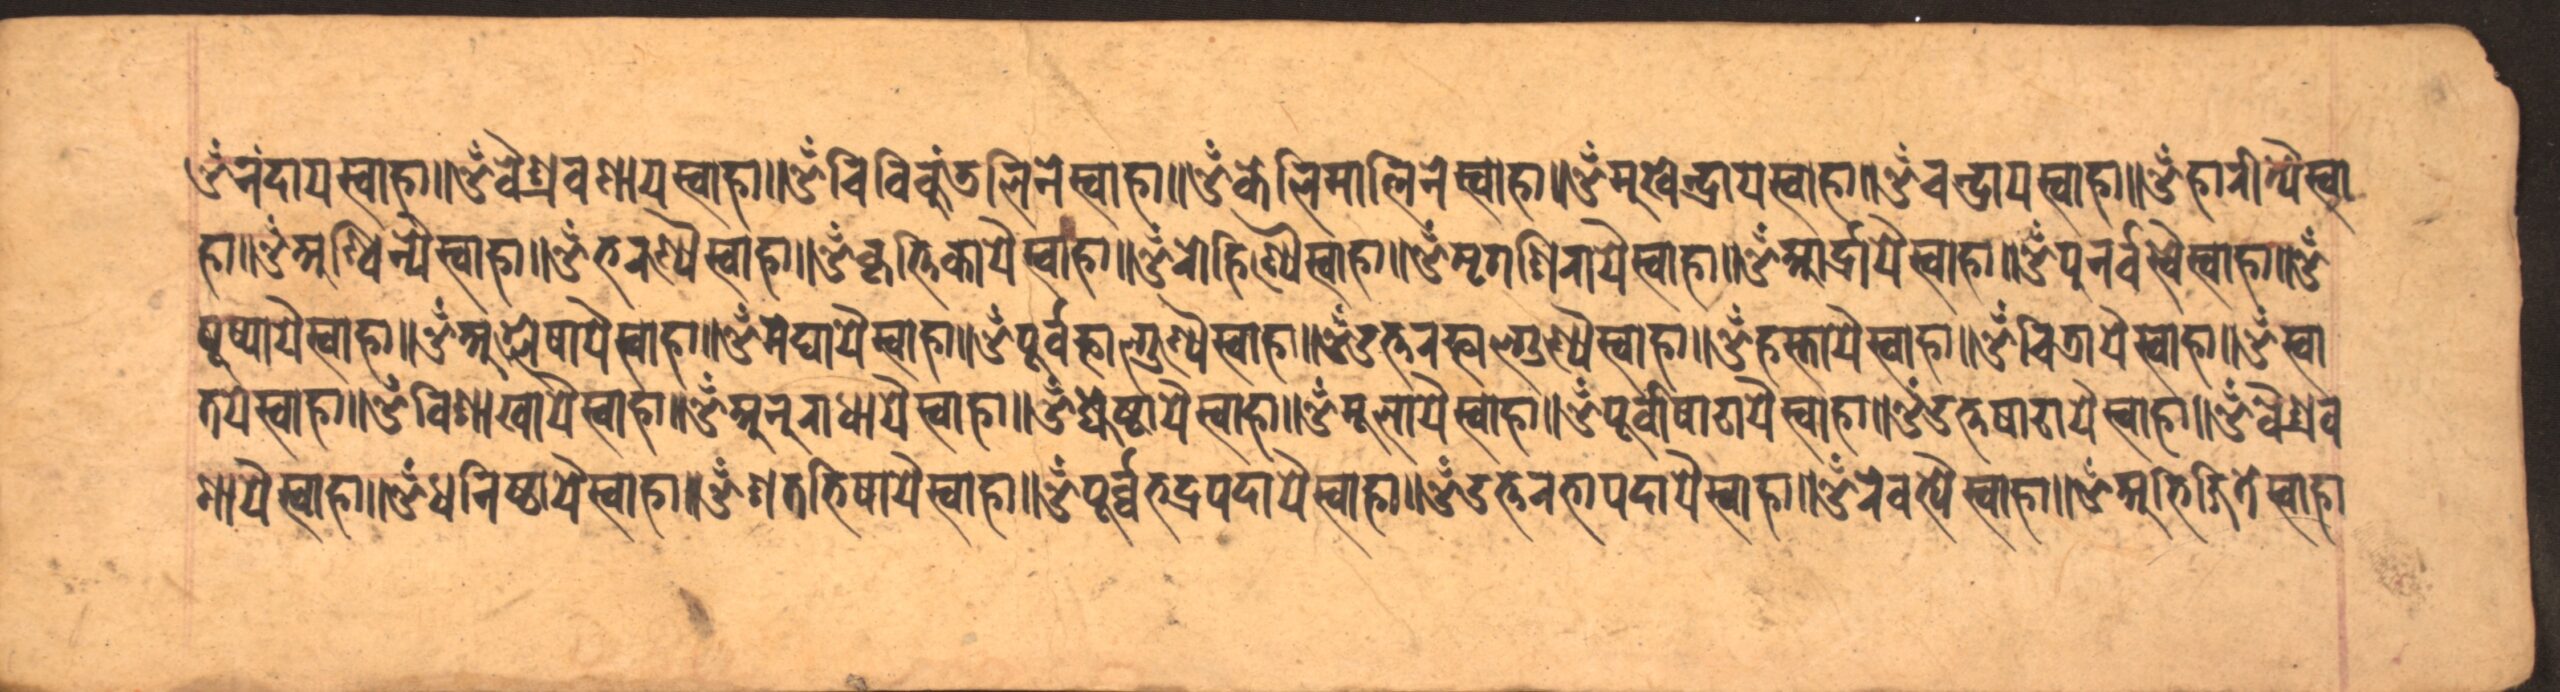 ॐनंदायस्वाहा॥ॐवैश्रवणायस्वाहा॥ॐचिविकुंतलिनेस्वाहा॥ॐकेलिमालिनेस्वाहा॥ॐमुखेन्द्रायस्वाहा॥ॐचन्द्रायस्वाहा॥ॐहारीत्यैस्वा
हा॥ॐअश्विन्यैस्वाहा॥ॐभरण्यैस्वाहा॥ॐकृत्तिकायैस्वाहा॥ॐरोहिण्यैस्वाहा॥ॐमृगशिरायैस्वाहा॥ॐआर्द्रायैस्वाहा॥ॐपुनर्वस्वैस्वाहा॥ॐ
षूष्यायैस्वाहा॥ॐअश्लेषायैस्वाहा॥ॐमेघायैस्वाहा॥ॐपूर्वफाल्गुण्यैस्वाहा॥ॐउत्तरफाल्गुण्यैस्वाहा॥ॐहस्तायैस्वाहा॥ॐचित्रायैस्वाहा॥ॐस्वा
तयेस्वाहा॥ॐविशाखायैस्वाहा॥ॐअनुराधायैस्वाहा॥ॐज्येष्ठायैस्वाहा॥ॐमूलायैस्वाहा॥ॐपूर्वाषाठायैस्वाहा॥ॐउत्तषाठायैस्वाहा॥ॐवैश्रव
णायैस्वाहा॥ॐधनिष्ठायैस्वाहा॥ॐशतभिषायैस्वाहा॥ॐपूर्व्वभद्रपदायैस्वाहा॥ॐउत्तरभापदायैस्वाहा॥ॐरेवत्यैस्वाहा॥ॐअभिजितेस्वाहा